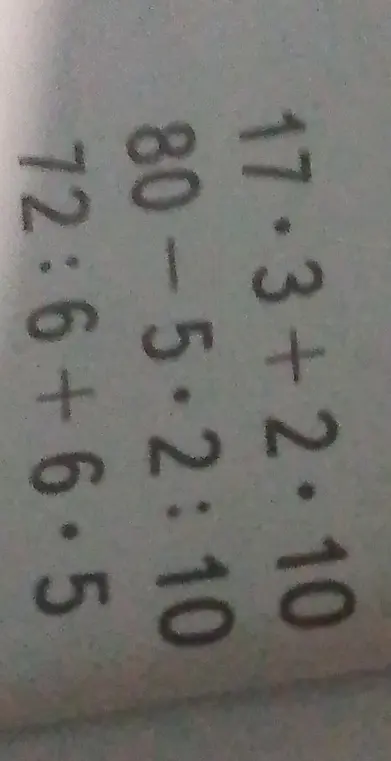 17 · 3 + 2 · 10
80 – 5 · 2 : 10
72 : 6 + 6 · 5